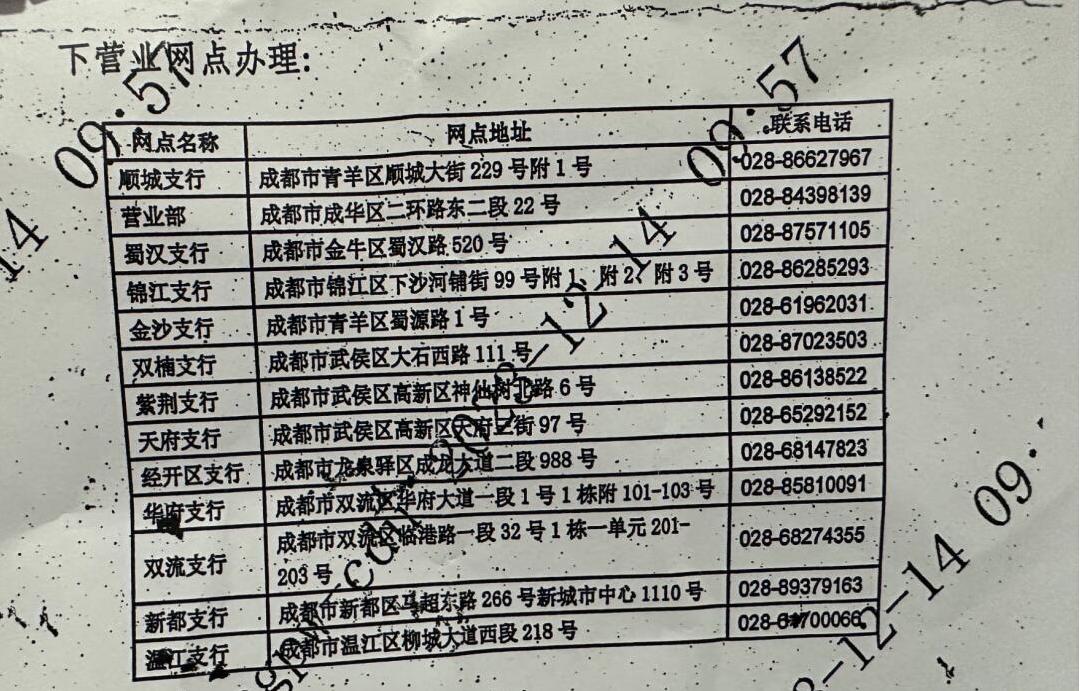 下营业网点办理:
网点名称 网点地址 联系电话
顺城支行 成都市青羊区顺城大街 229 号附 1 号 028-86627967
营业部 成都市成华区二环路东二段 22 号 028-84398139
蜀汉支行 成都市金牛区蜀汉路 520 号 028-87571105
锦江支行 成都市锦江区下沙河铺街 99 号附 1、附 2、附 3 号 028-86285293
金沙支行 成都市青羊区蜀源路 1 号 028-61962031
双楠支行 成都市武侯区大石西路 111 号 028-87023503
紫荆支行 成都市武侯区高新区神仙树北路 6 号 028-86138522
天府支行 成都市武侯区高新区天府三街 97 号 028-65292152
经开区支行 成都市龙泉驿区成龙大道二段 988 号 028-68147823
华府支行 成都市双流区华府大道一段 1 号 1 栋附 101-103 号 028-85810091
双流支行 成都市双流区临港路一段 32 号 1 栋一单元 201-
203 号 028-68274355
新都支行 成都市新都区马超东路 266 号新城市中心 1110 号 028-89379163
温江支行 成都市温江区柳城大道西段 218 号
09:57
09:57
-12-14
-12-14 09:
14